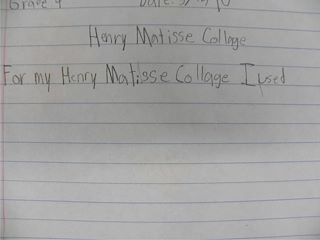 Grade 4
Date:
Henry Matisse Collage
For my Henry Matisse Collage I used